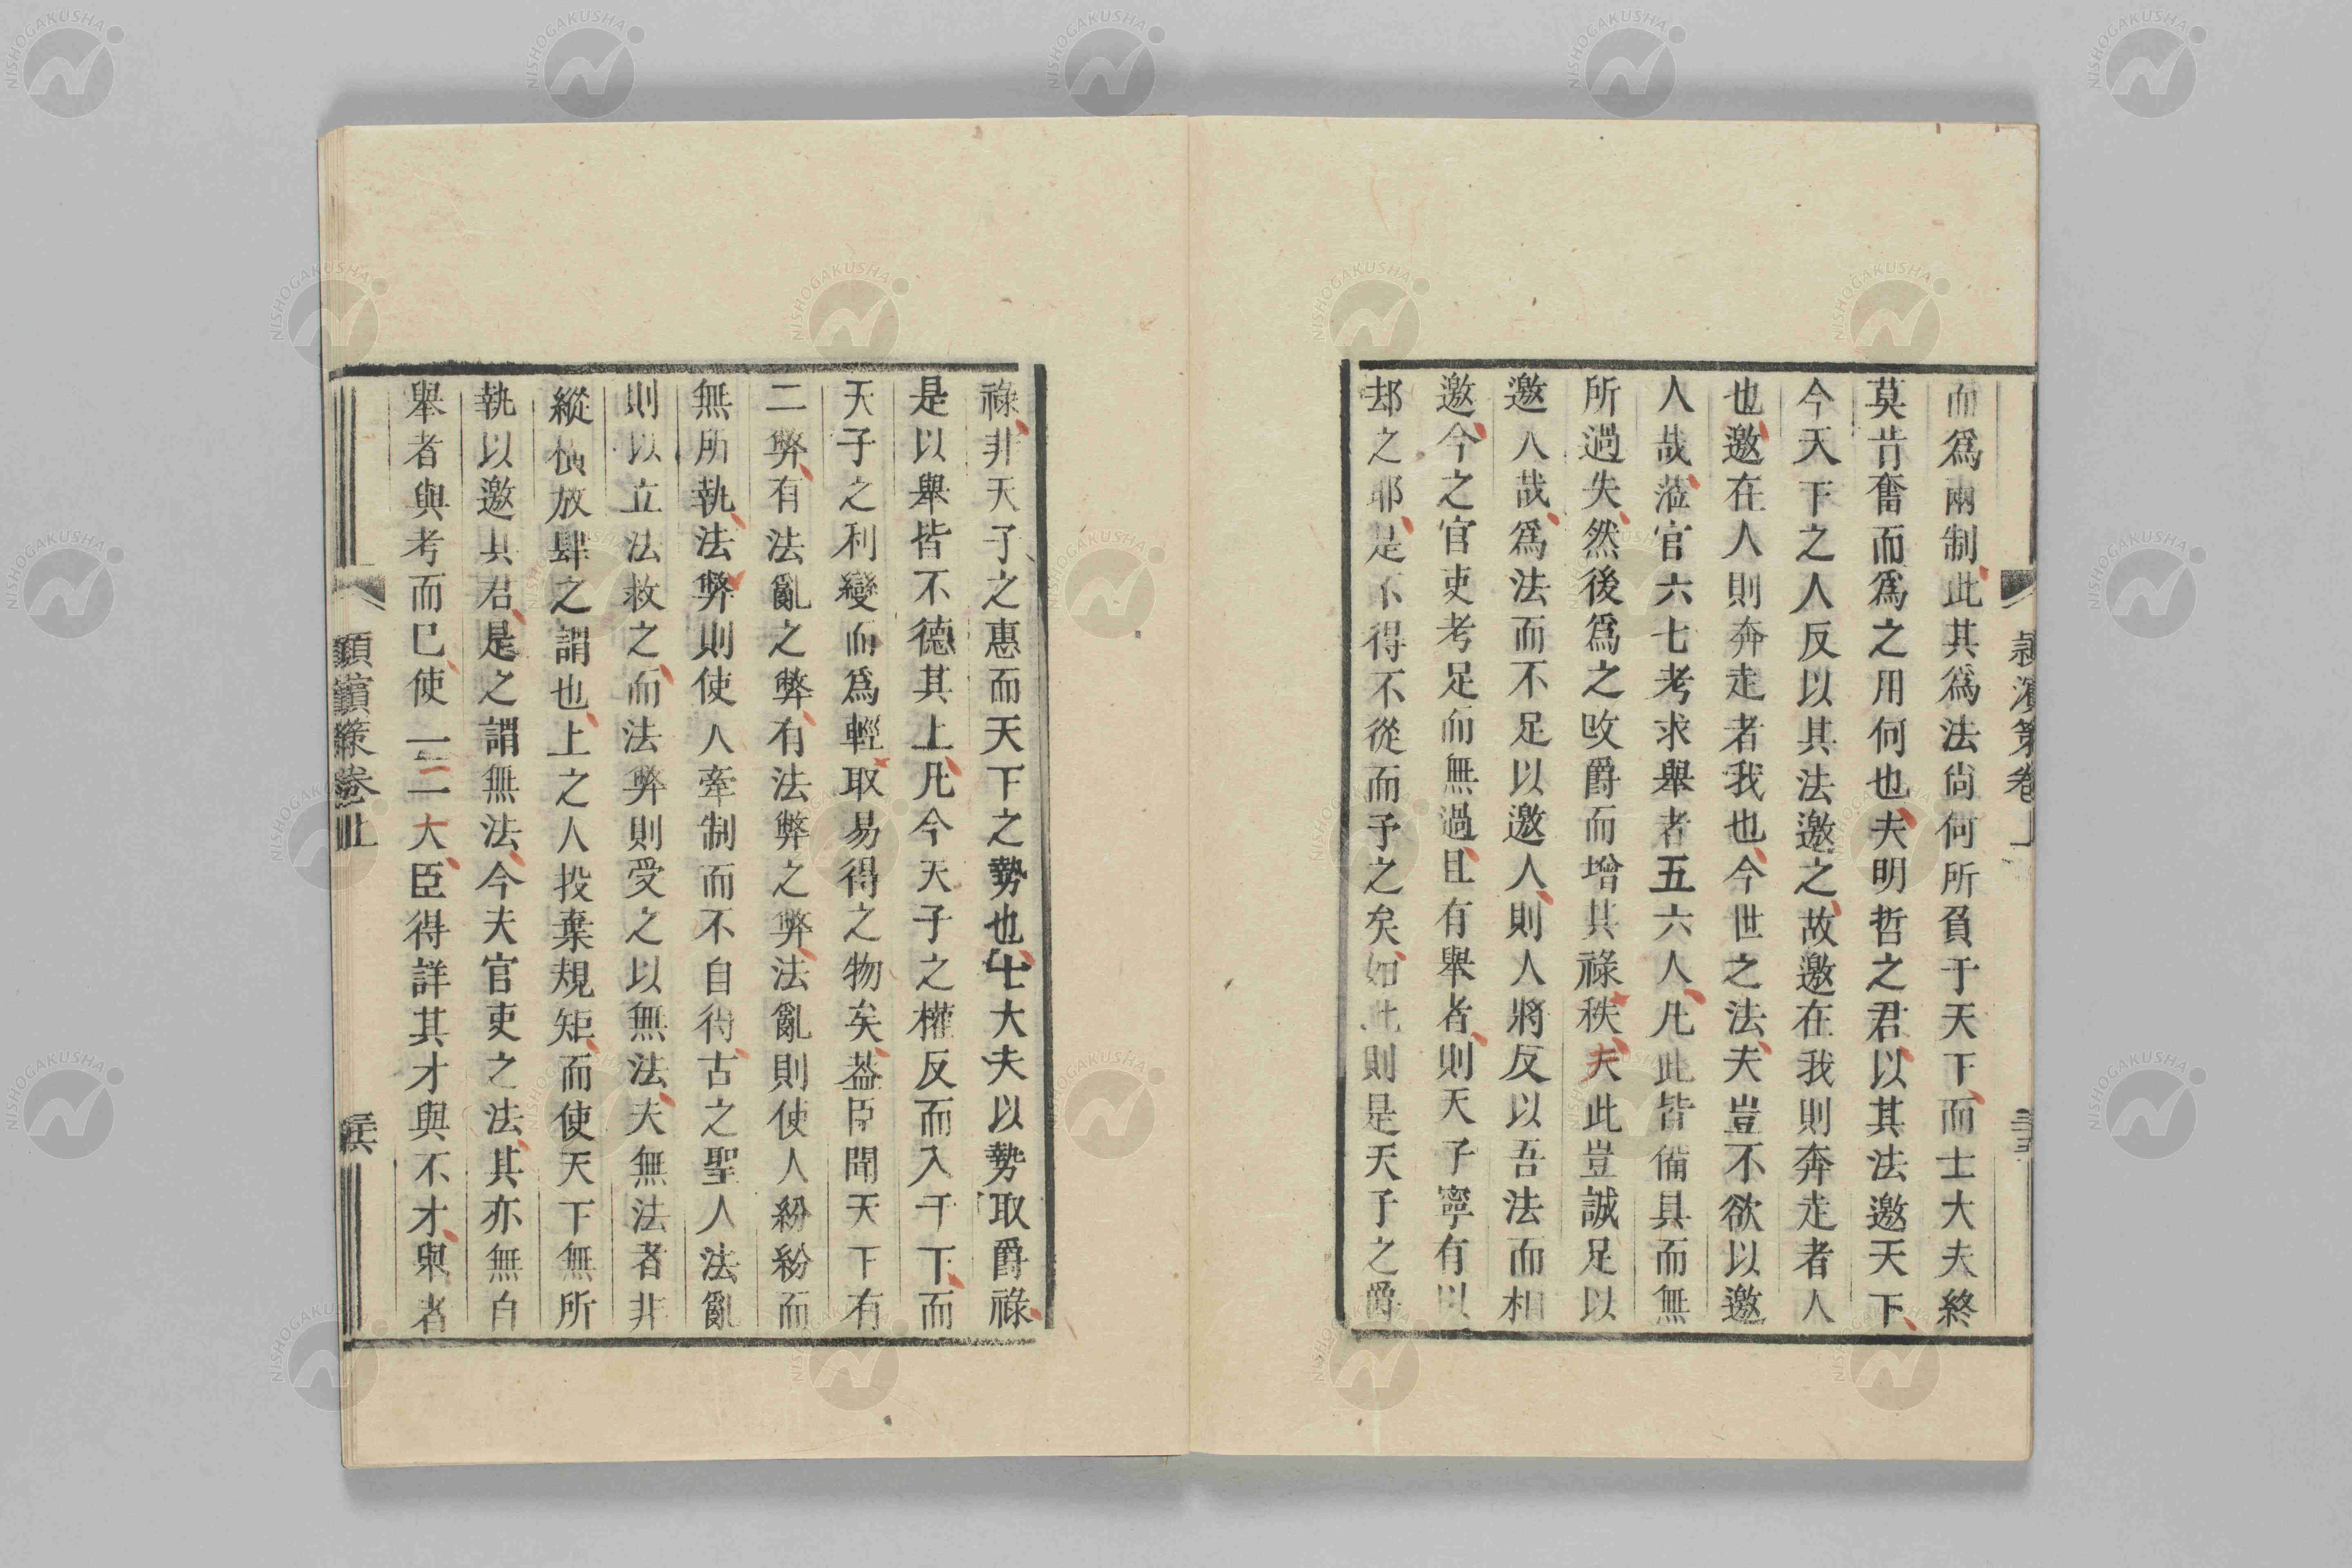 而爲兩制此其爲法尙何所負于天下而士大夫終
莫肯奮而爲之用何也夫明哲之君以其法邀天下
今天下之人反以其法邀之故邀在我則奔走者人
也邀在人則奔走者我也今世之法夫豈不欲以邀
人哉蒞官六七考求舉者五六人凡此皆備具而無
所過失然後爲之改爵而增其祿秩夫此豈誠足以
邀人哉爲法而不足以邀人則人將反以吾法而相
邀今之官吏考足而無過且有舉者則天子寧有以
却之耶是不得不從而予之矣如此則是天子之爵
祿非天子之惠而天下之勢也士大夫以勢取爵祿
是以舉皆不德其上凡今天子之權反而入于下而
天子之利變而爲輕取易得之物矣葢臣聞天下有
二弊有法亂之弊有法弊之弊法亂則使人紛紛而
無所執法弊則使人牽制而不自得古之聖人法亂
則以立法救之而法弊則受之以無法夫無法者非
縱橫放肆之謂也上之人投棄規矩而使天下無所
執以邀其君是之謂無法今夫官吏之法其亦無自
舉者與考而已使一二大臣得詳其才與不才舉者
潁濱策卷上